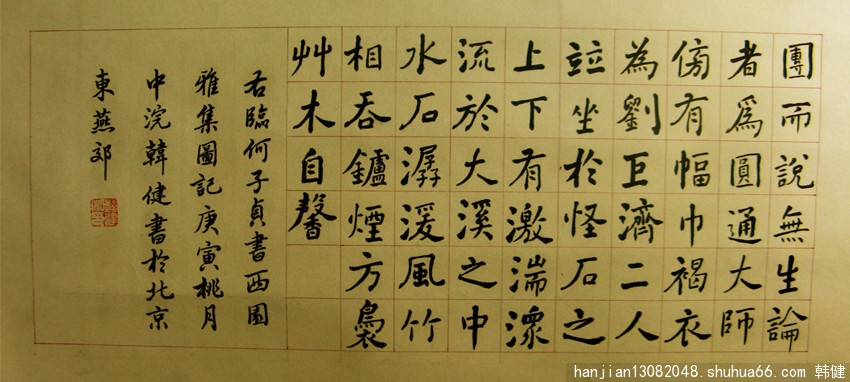 團而說無生論
者爲圓通大師
傍有幅巾褐衣
為劉巨濟二人
竝坐扵怪石之
上下有激湍潨
流於大溪之中
水石潺湲風竹
相吞鑪煙方裊
艸木自馨
右臨何子貞書西園
雅集圖記庚寅桃月
中浣韓健書扵北京
東燕郊
hanjian13082048.shuhua66.com 韩健